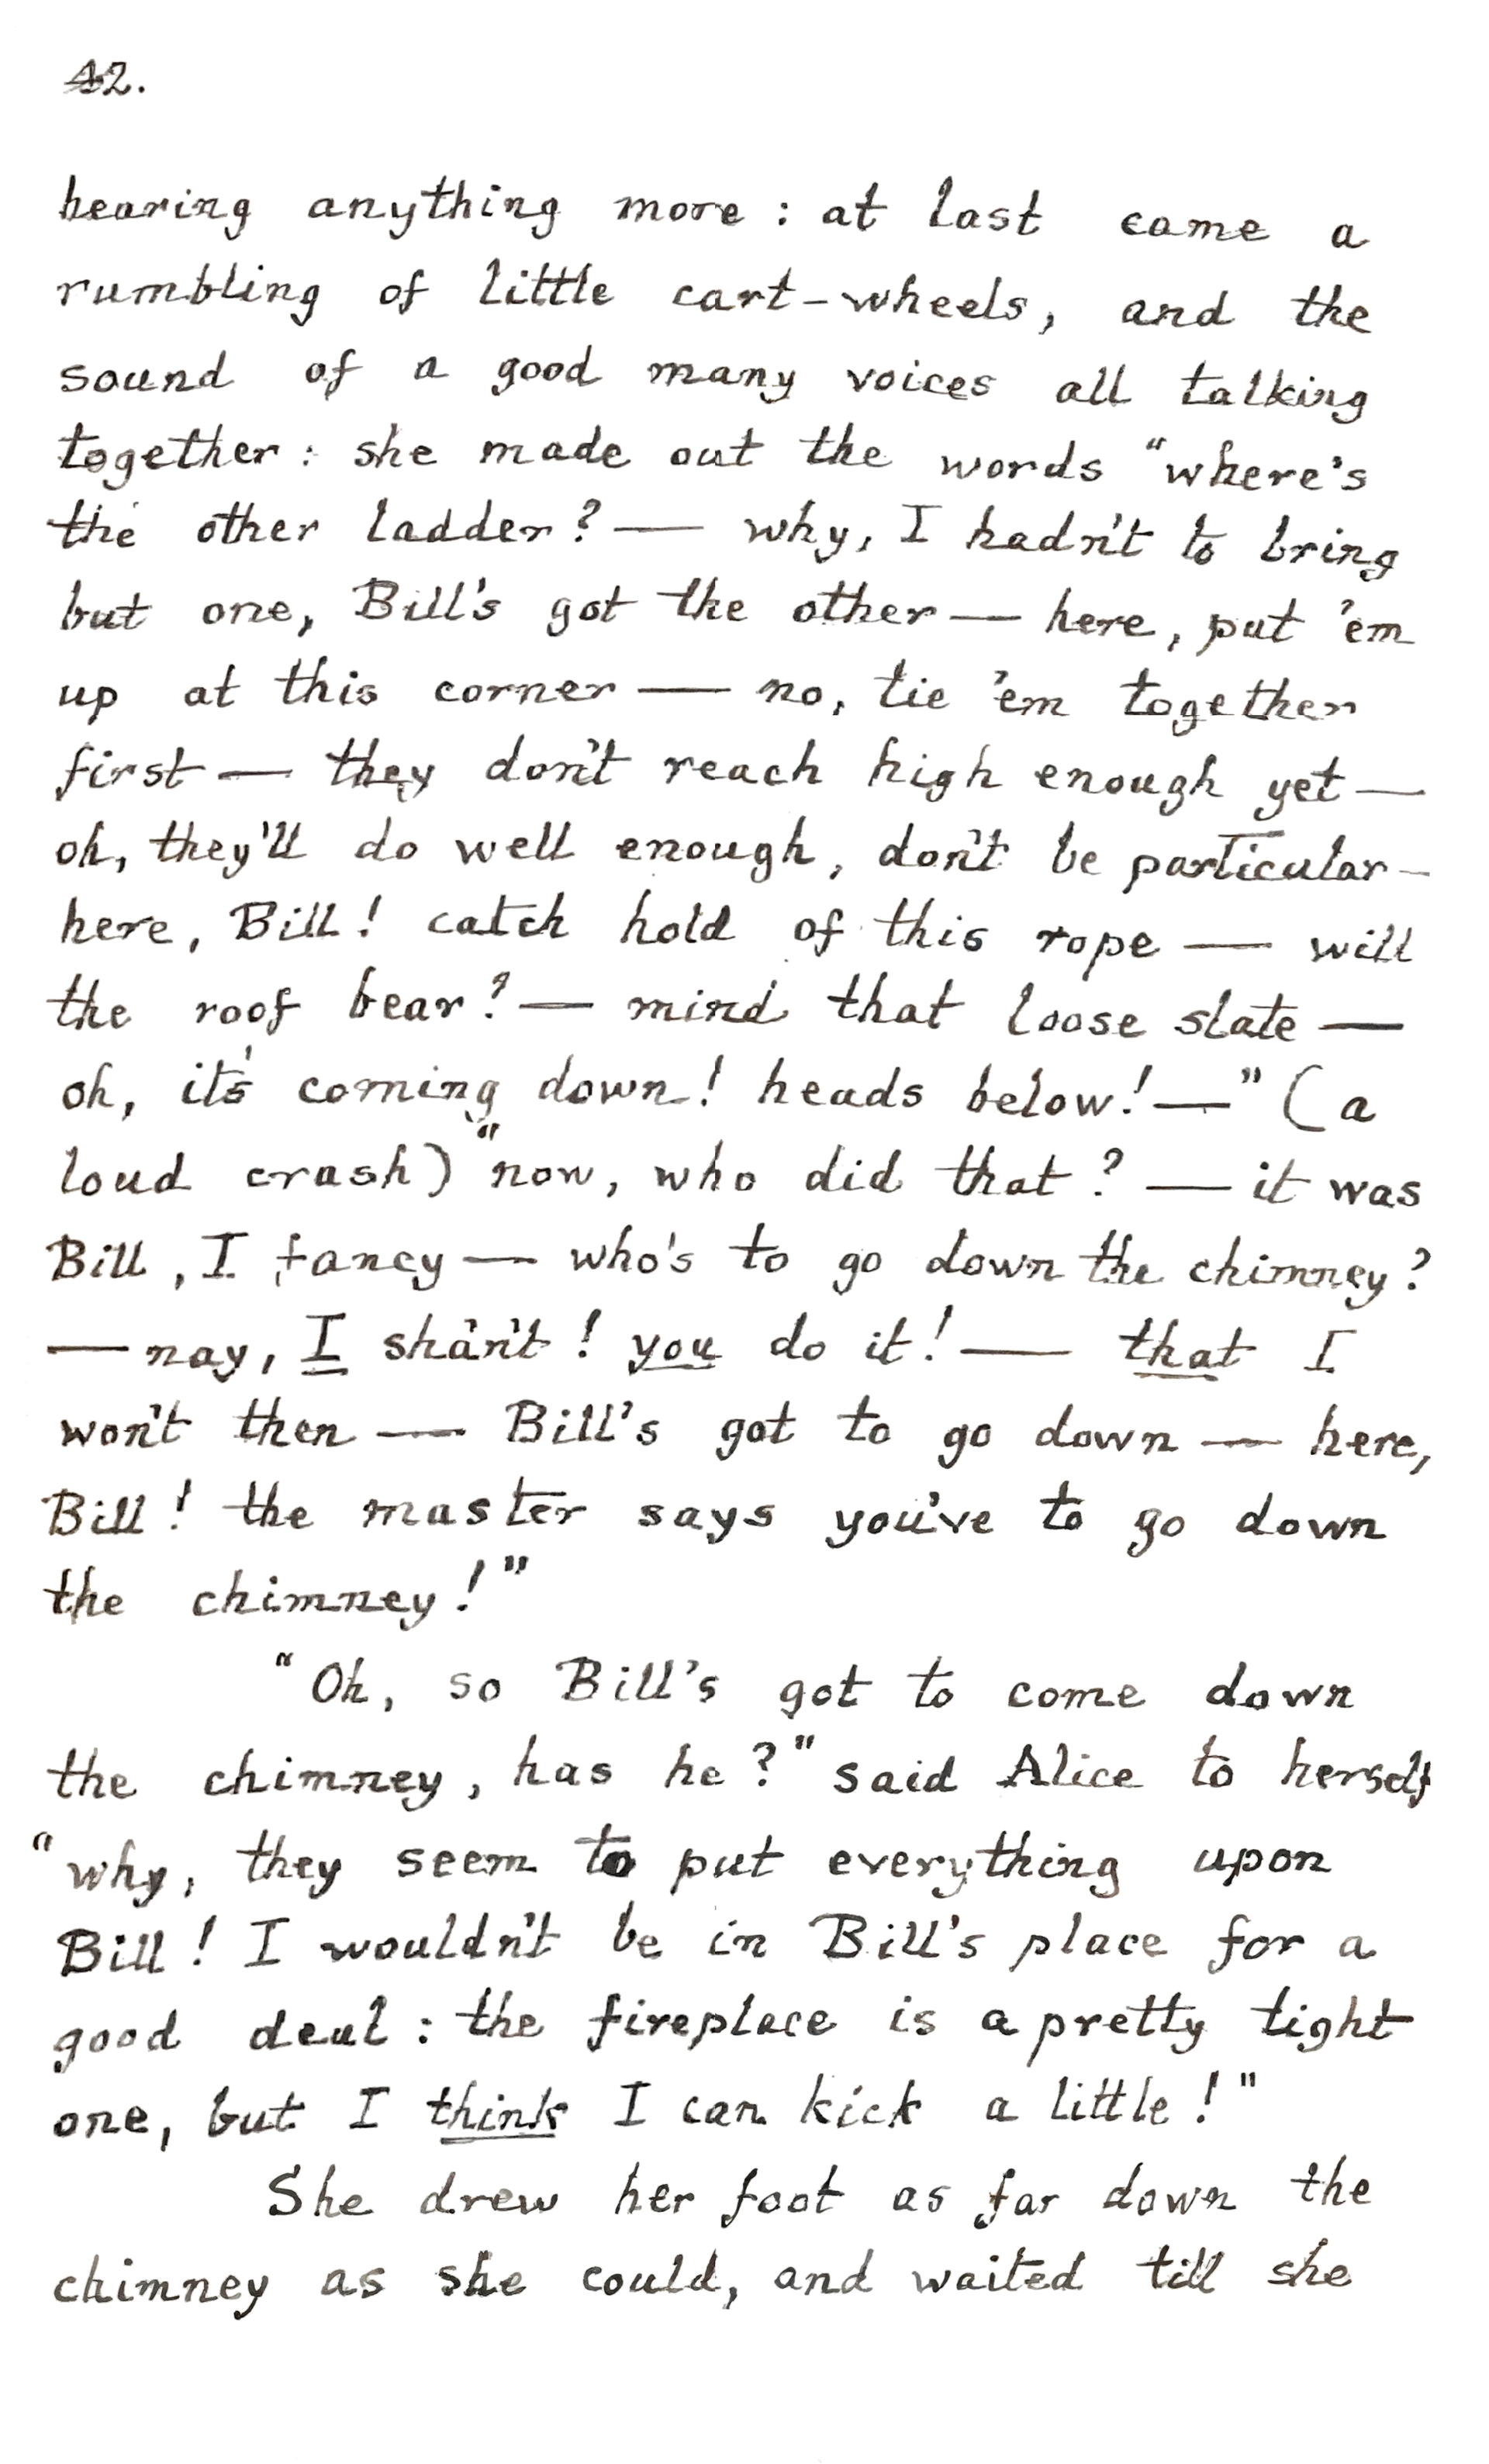 42.
hearing anything more : at last came a
rumbling of little cart-wheels, and the
sound of a good many voices all talking
together : she made out the words “where's
the other ladder? — why, I hadn't to bring
but one, Bill's got the other — here, put 'em
up at this corner — no, tie 'em together
first — they don't reach high enough yet —
oh, they'll do well enough, don't be particular —
here, Bill! catch hold of this rope — will
the roof bear? — mind that loose slate —
oh, it's coming down! heads below! —” (a
loud crash) “now, who did that? — it was
Bill, I fancy — who's to go down the chimney?
— nay, I sha'n't! you do it! — that I
won't then — Bill's got to go down — here,
Bill! the master says you've to go down
the chimney!”
“Oh, so Bill's got to come down
the chimney, has he?” said Alice to herself
“why, they seem to put everything upon
Bill! I wouldn't be in Bill's place for a
good deal : the fireplace is a pretty tight
one, but I think I can kick a little!”
She drew her foot as far down the
chimney as she could, and waited till she